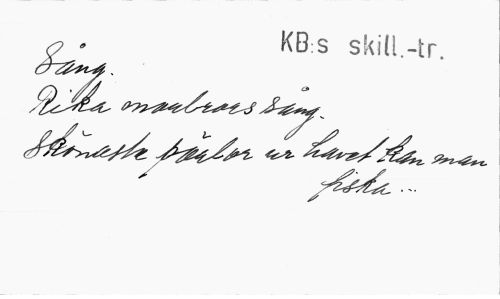 KB:s skill.-tr.
Sång.
Rika morbrors sång.
Skönaste pärlor ur havet kan man
fiska ...